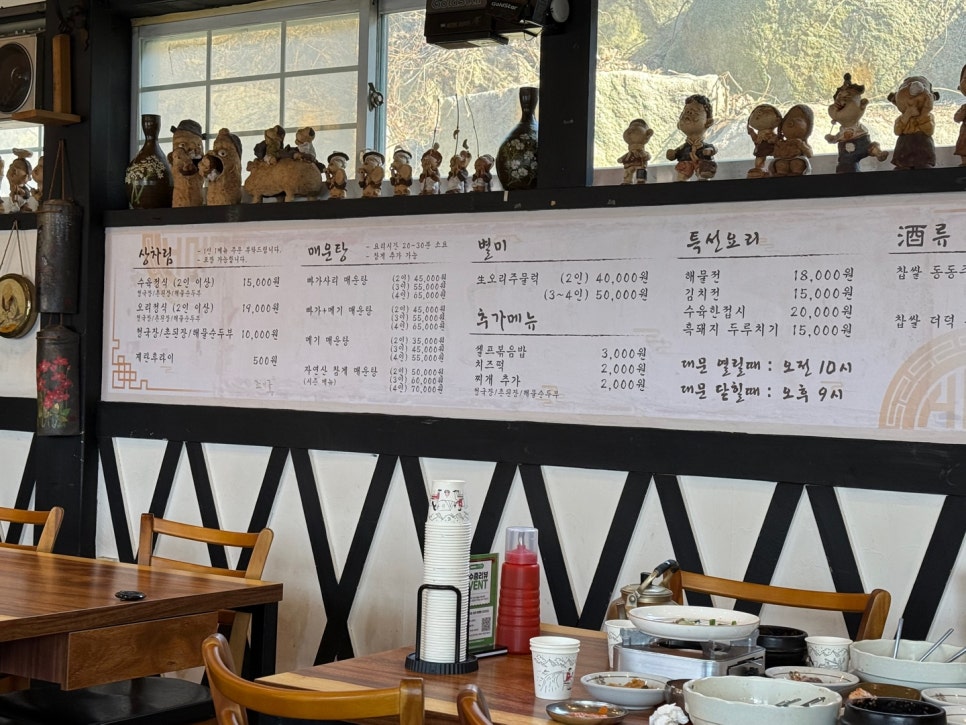 GoldStar
상차림
- 1인 1메뉴 주문 부탁드립니다.
- 포장 가능합니다.
수육정식 (2인 이상) 15,000원
청국장/촌된장/해물순두부
오리정식 (2인 이상) 19,000원
청국장/촌된장/해물순두부
청국장/촌된장/해물순두부 10,000원
계란후라이 500원
매운탕
- 요리시간 20-30분 소요
- 참게 추가 가능
빠가사리 매운탕 (2인) 45,000원
(3인) 55,000원
(4인) 65,000원
빠가+메기 매운탕 (2인) 45,000원
(3인) 55,000원
(4인) 65,000원
메기 매운탕 (2인) 35,000원
(3인) 45,000원
(4인) 55,000원
자연산 참게 매운탕 (2인) 50,000원
(시즌 메뉴) (3인) 60,000원
(4인) 70,000원
별미
生오리주물럭 (2인) 40,000원
(3~4인) 50,000원
추가메뉴
셀프볶음밥 3,000원
치즈떡 2,000원
찌개 추가 2,000원
청국장/촌된장/해물순두부
특선요리
해물전 18,000원
김치전 15,000원
수육한접시 20,000원
흑돼지 두루치기 15,000원
대문 열릴때 : 오전 10시
대문 닫힐때 : 오후 9시
酒류
찹쌀 동동주
찹쌀 더덕
VENT